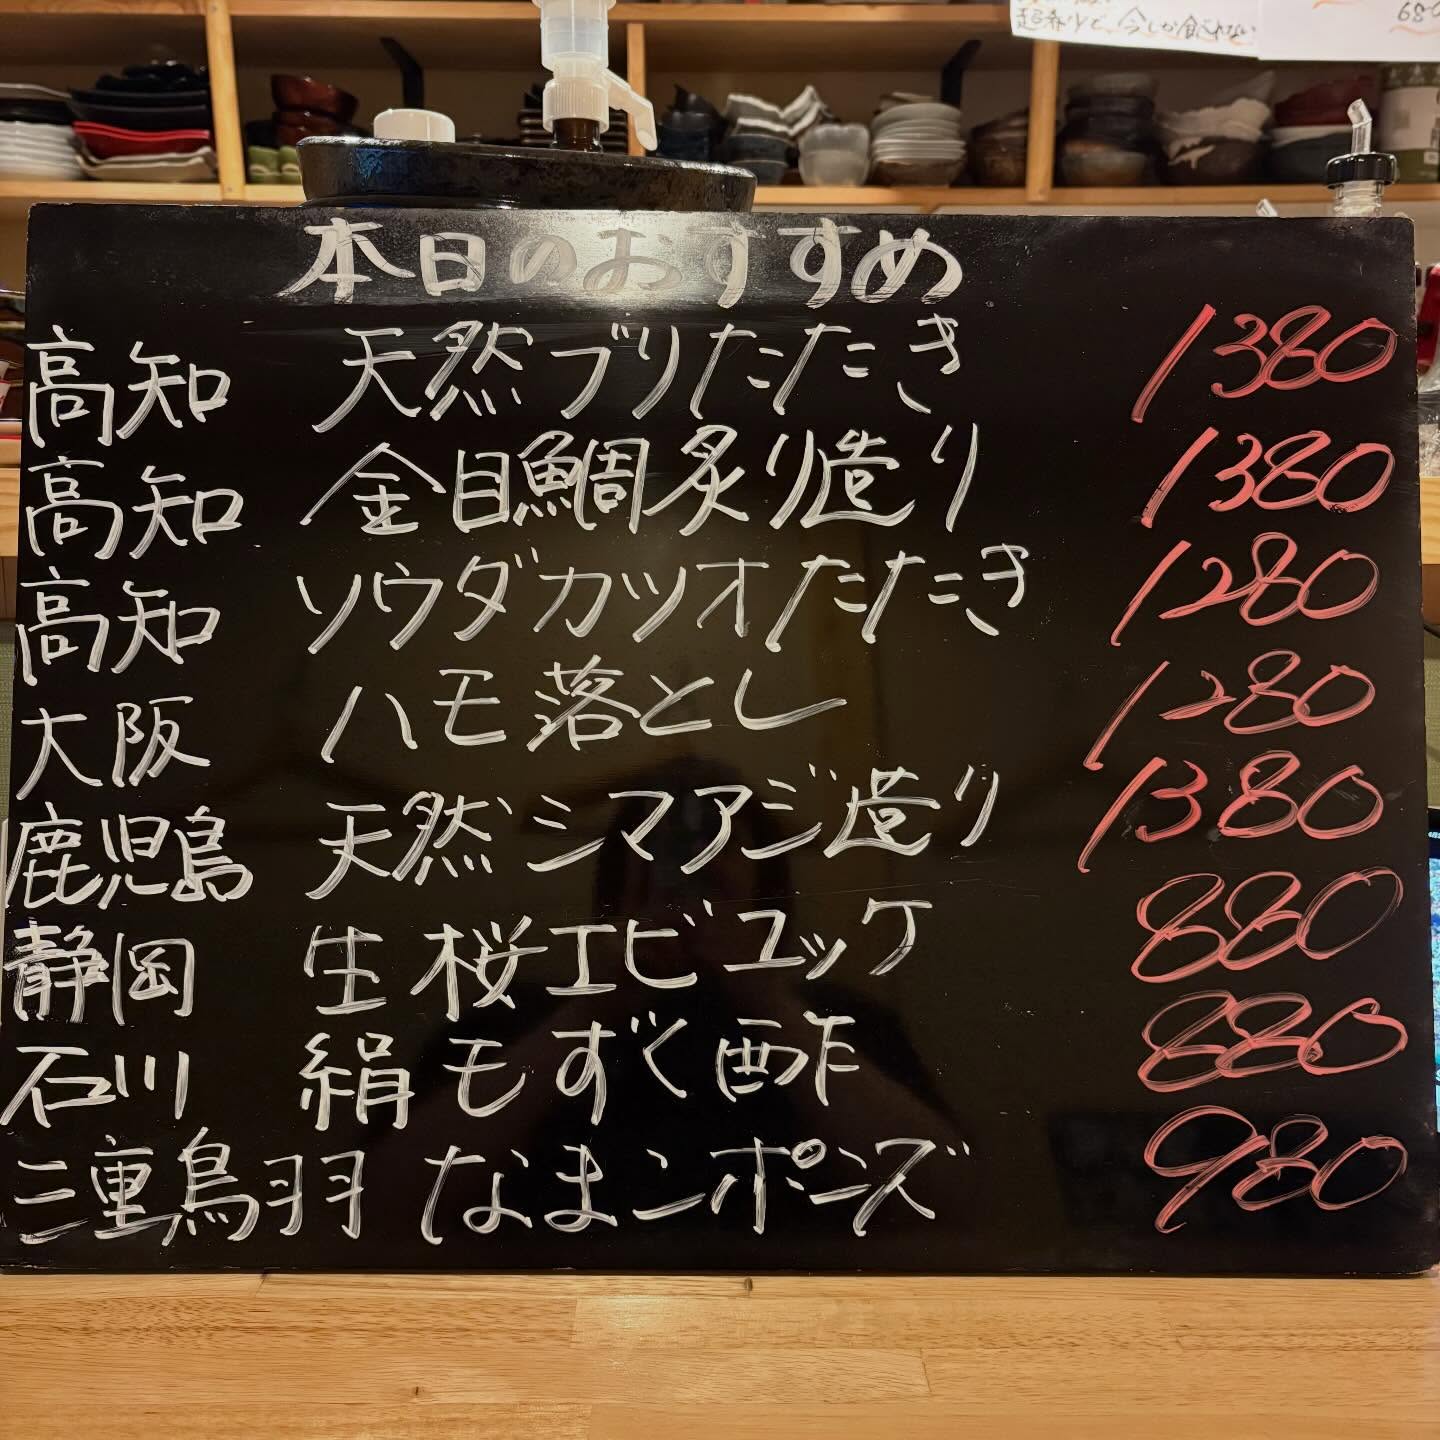 超希少で、今しか食べれない
680
本日のおすすめ
高知 天然ブリたたき 1380
高知 金目鯛炙り造り 1380
高知 ソウダカツオたたき 1280
大阪 ハモ落とし 1280
鹿児島 天然シマアジ造り 1380
静岡 生桜エビユッケ 880
石川 絹もずく酢 880
三重鳥羽 なまこポンズ 980